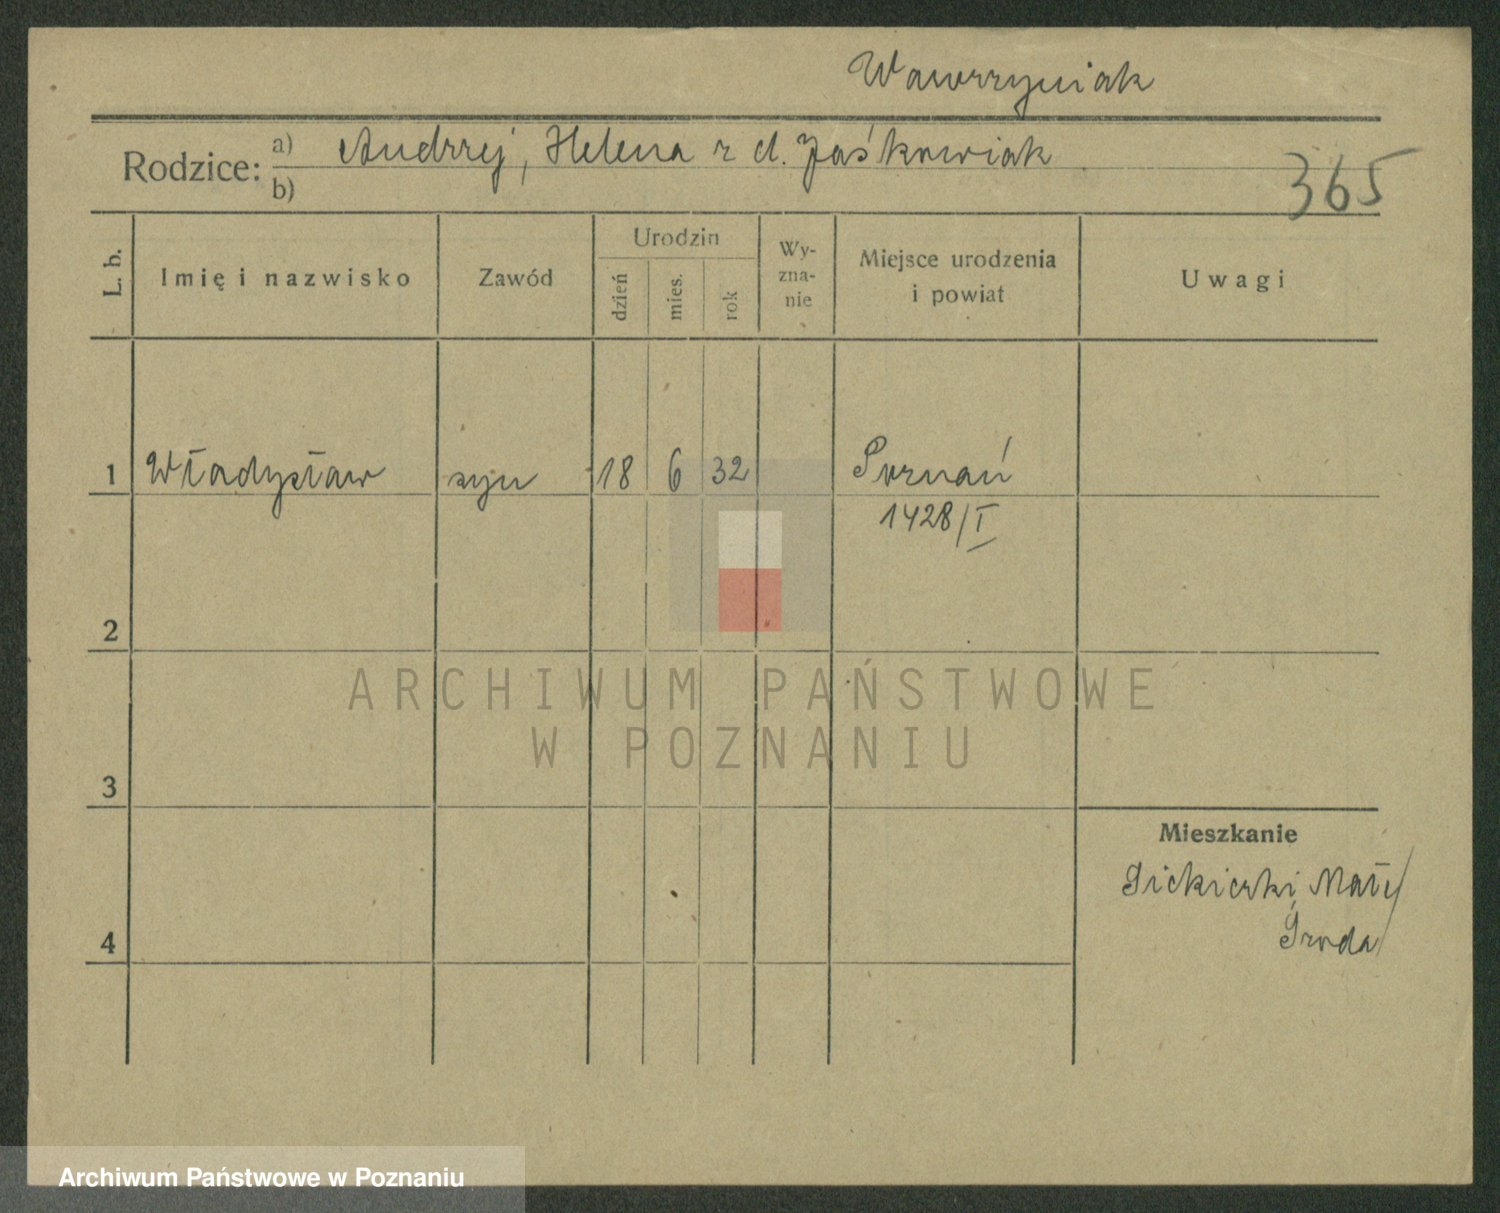 Wawrzyniak
Rodzice: a) Andrzej, Helena z d. Jaśkowiak
b)
365
L. b.
Imię i nazwisko
Zawód
Urodzin
dzień
mies.
rok
Wy-
zna-
nie
Miejsce urodzenia
i powiat
Uwagi
1 Władysław syn 18 6 32 Poznań
1428/I
2
3
4
ARCHIWUM PAŃSTWOWE
W POZNANIU
Mieszkanie
Siekierki Małe
Środa
Archiwum Państwowe w Poznaniu